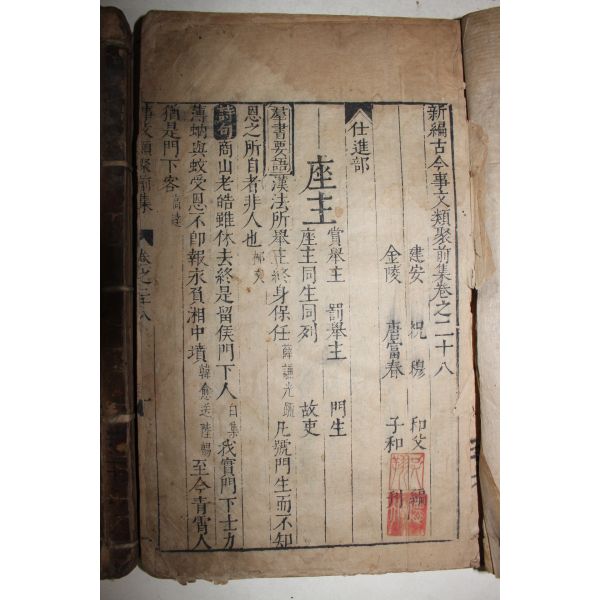 新編古今事文類聚前集卷之二十八
建安 祝穆 和父 編
金陵 唐富春 子和 刋
仕進部
座主
賞舉主 罰舉主 門生
座主同生同列 故吏
羣書要語漢法所舉主終身保任薛謙光疏凡號門生而不知
恩之所自者非人也
詩句商山老皓雖休去終是留侯門下人白集我實門下士力
薄蚋與蚊受恩不即報永負湘中墳韓愈送陸暢至今青霄人
猶是門下客高達
事文類聚前集 卷之二十八